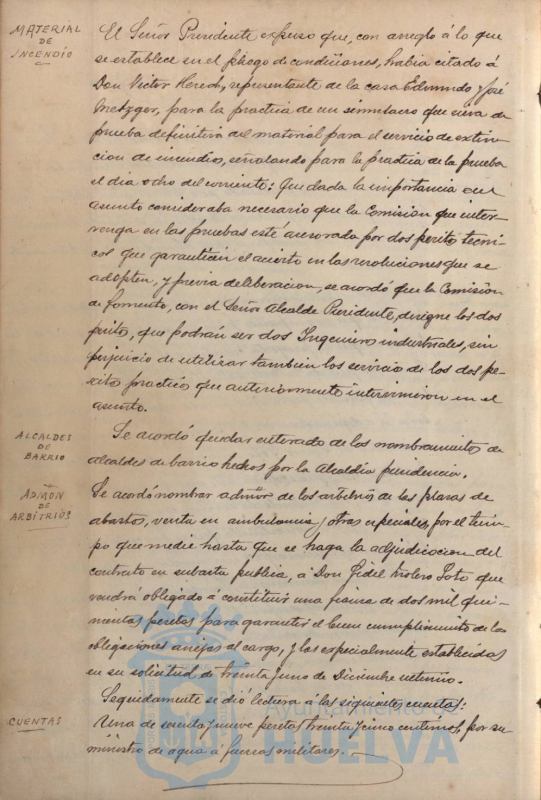 MATERIAL
DE
INCENDIO
El Señor Presidente expuso que, con arreglo á lo que
se establece en el pliego de condiciones, habia citado á
Don Victor Herech, representante de la casa Edmundo y José
Metzger, para la practica de un simulacro que sirva de
prueba definitiva del material para el servicio de extin-
cion de incendios, señalando para la practica de la prueba
el dia ocho del corriente: Que dada la importancia del
asunto consideraba necesario que la Comision que inter-
venga en las pruebas esté asesorada por dos peritos tecni-
cos que garanticen el acierto en las resoluciones que se
adopten, y previa deliberacion, se acordó que la Comision
de fomento, con el Señor Alcalde Presidente, designe los dos
peritos, que podrán ser dos Ingenieros industriales, sin
perjuicio de utilizar tambien los servicios de los dos pe-
ritos practicos que anteriormente intervinieron en el
asunto.
ALCALDES
DE
BARRIO
Se acordó quedar enterado de los nombramientos de
alcaldes de barrio hechos por la Alcaldia presidencia.
ADMÓN
DE
ARBÍTRIOS
Se acordó nombrar admor de los arbitrios de las plazas de
abastos, venta en ambulancia y otras especiales, por el tiem-
po que medie hasta que se haga la adjudicacion del
contrato en subasta publica, á Don Fidel Molero Soto que
vendrá obligado á constituir una fianza de dos mil qui-
nientas pesetas para garantir el buen cumplimiento de las
obligaciones anejas al cargo, y las especialmente establecidas
en su solicitud de treinta y uno de Diciembre ultimo.
Seguidamente se dió lectura á las siguientes cuentas:
CUENTAS
Una de ciento y nueve pesetas treinta y cinco centimos, por su-
ministro de agua á fuerzas militares.
Ayuntamiento
HUELVA